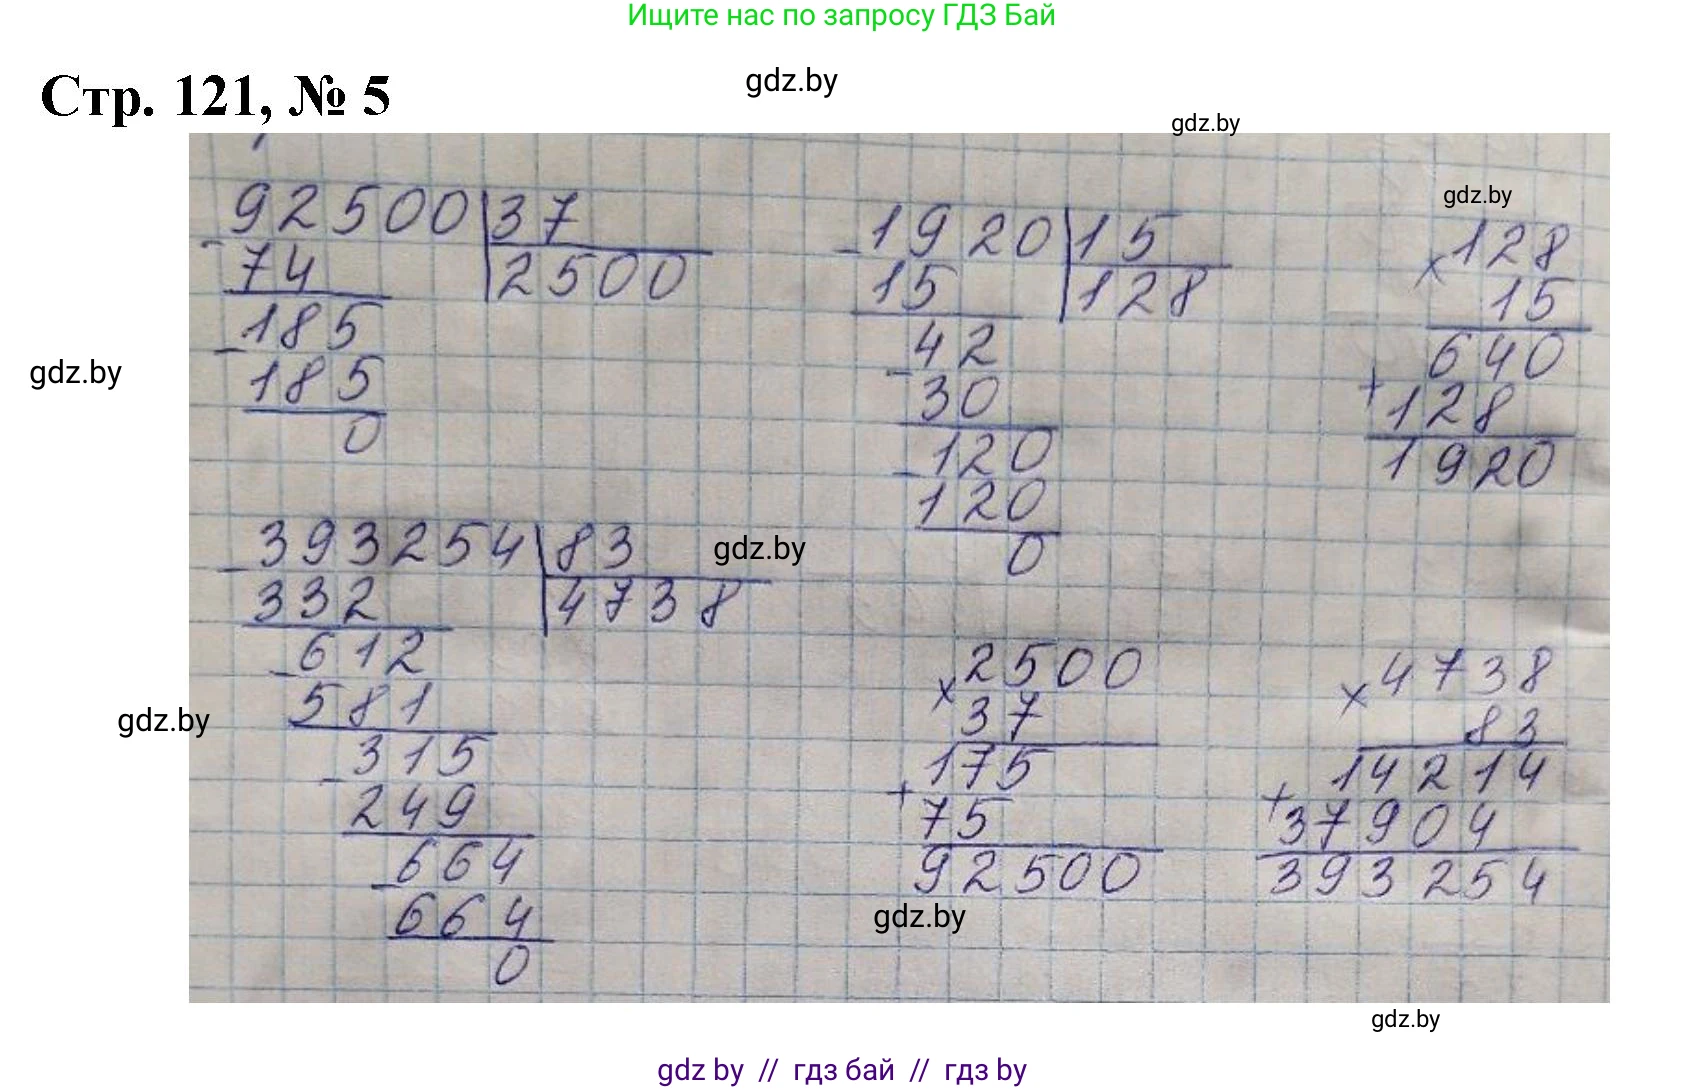 Ищите нас по запросу ГДЗ Бай
Стр. 121, № 5
gdz.by
gdz.by
gdz.by
92500 | 37
- 74
2500
- 185
185
0
- 1920 | 15
15
128
- 42
30
- 120
120
0
× 128
15
640
+ 128
1920
gdz.by
- 393254 | 83
332
4738
- 612
581
- 315
249
- 664
664
0
gdz.by
gdz.by
× 2500
37
175
+ 75
92500
× 4738
83
14214
+ 37904
393254
gdz.by
gdz.by
gdz by // гдз бай // гдз by